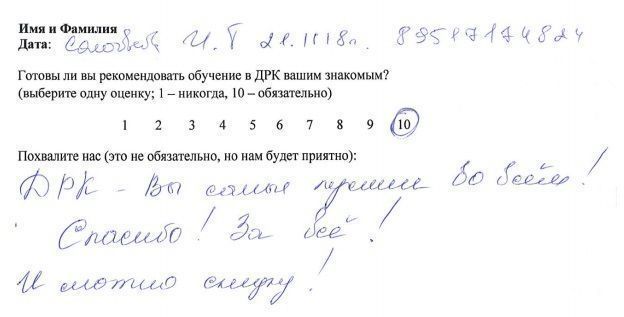 Имя и Фамилия
Дата: Соловьев И.Г 21.11.18г. 89517174824
Готовы ли вы рекомендовать обучение в ДРК вашим знакомым?
(выберите одну оценку; 1 – никогда, 10 – обязательно)
1 2 3 4 5 6 7 8 9 10
Похвалите нас (это не обязательно, но нам будет приятно):
ДРК - Вы самые лучшии во всём!
Спасибо! За всё!
И можно скидку!